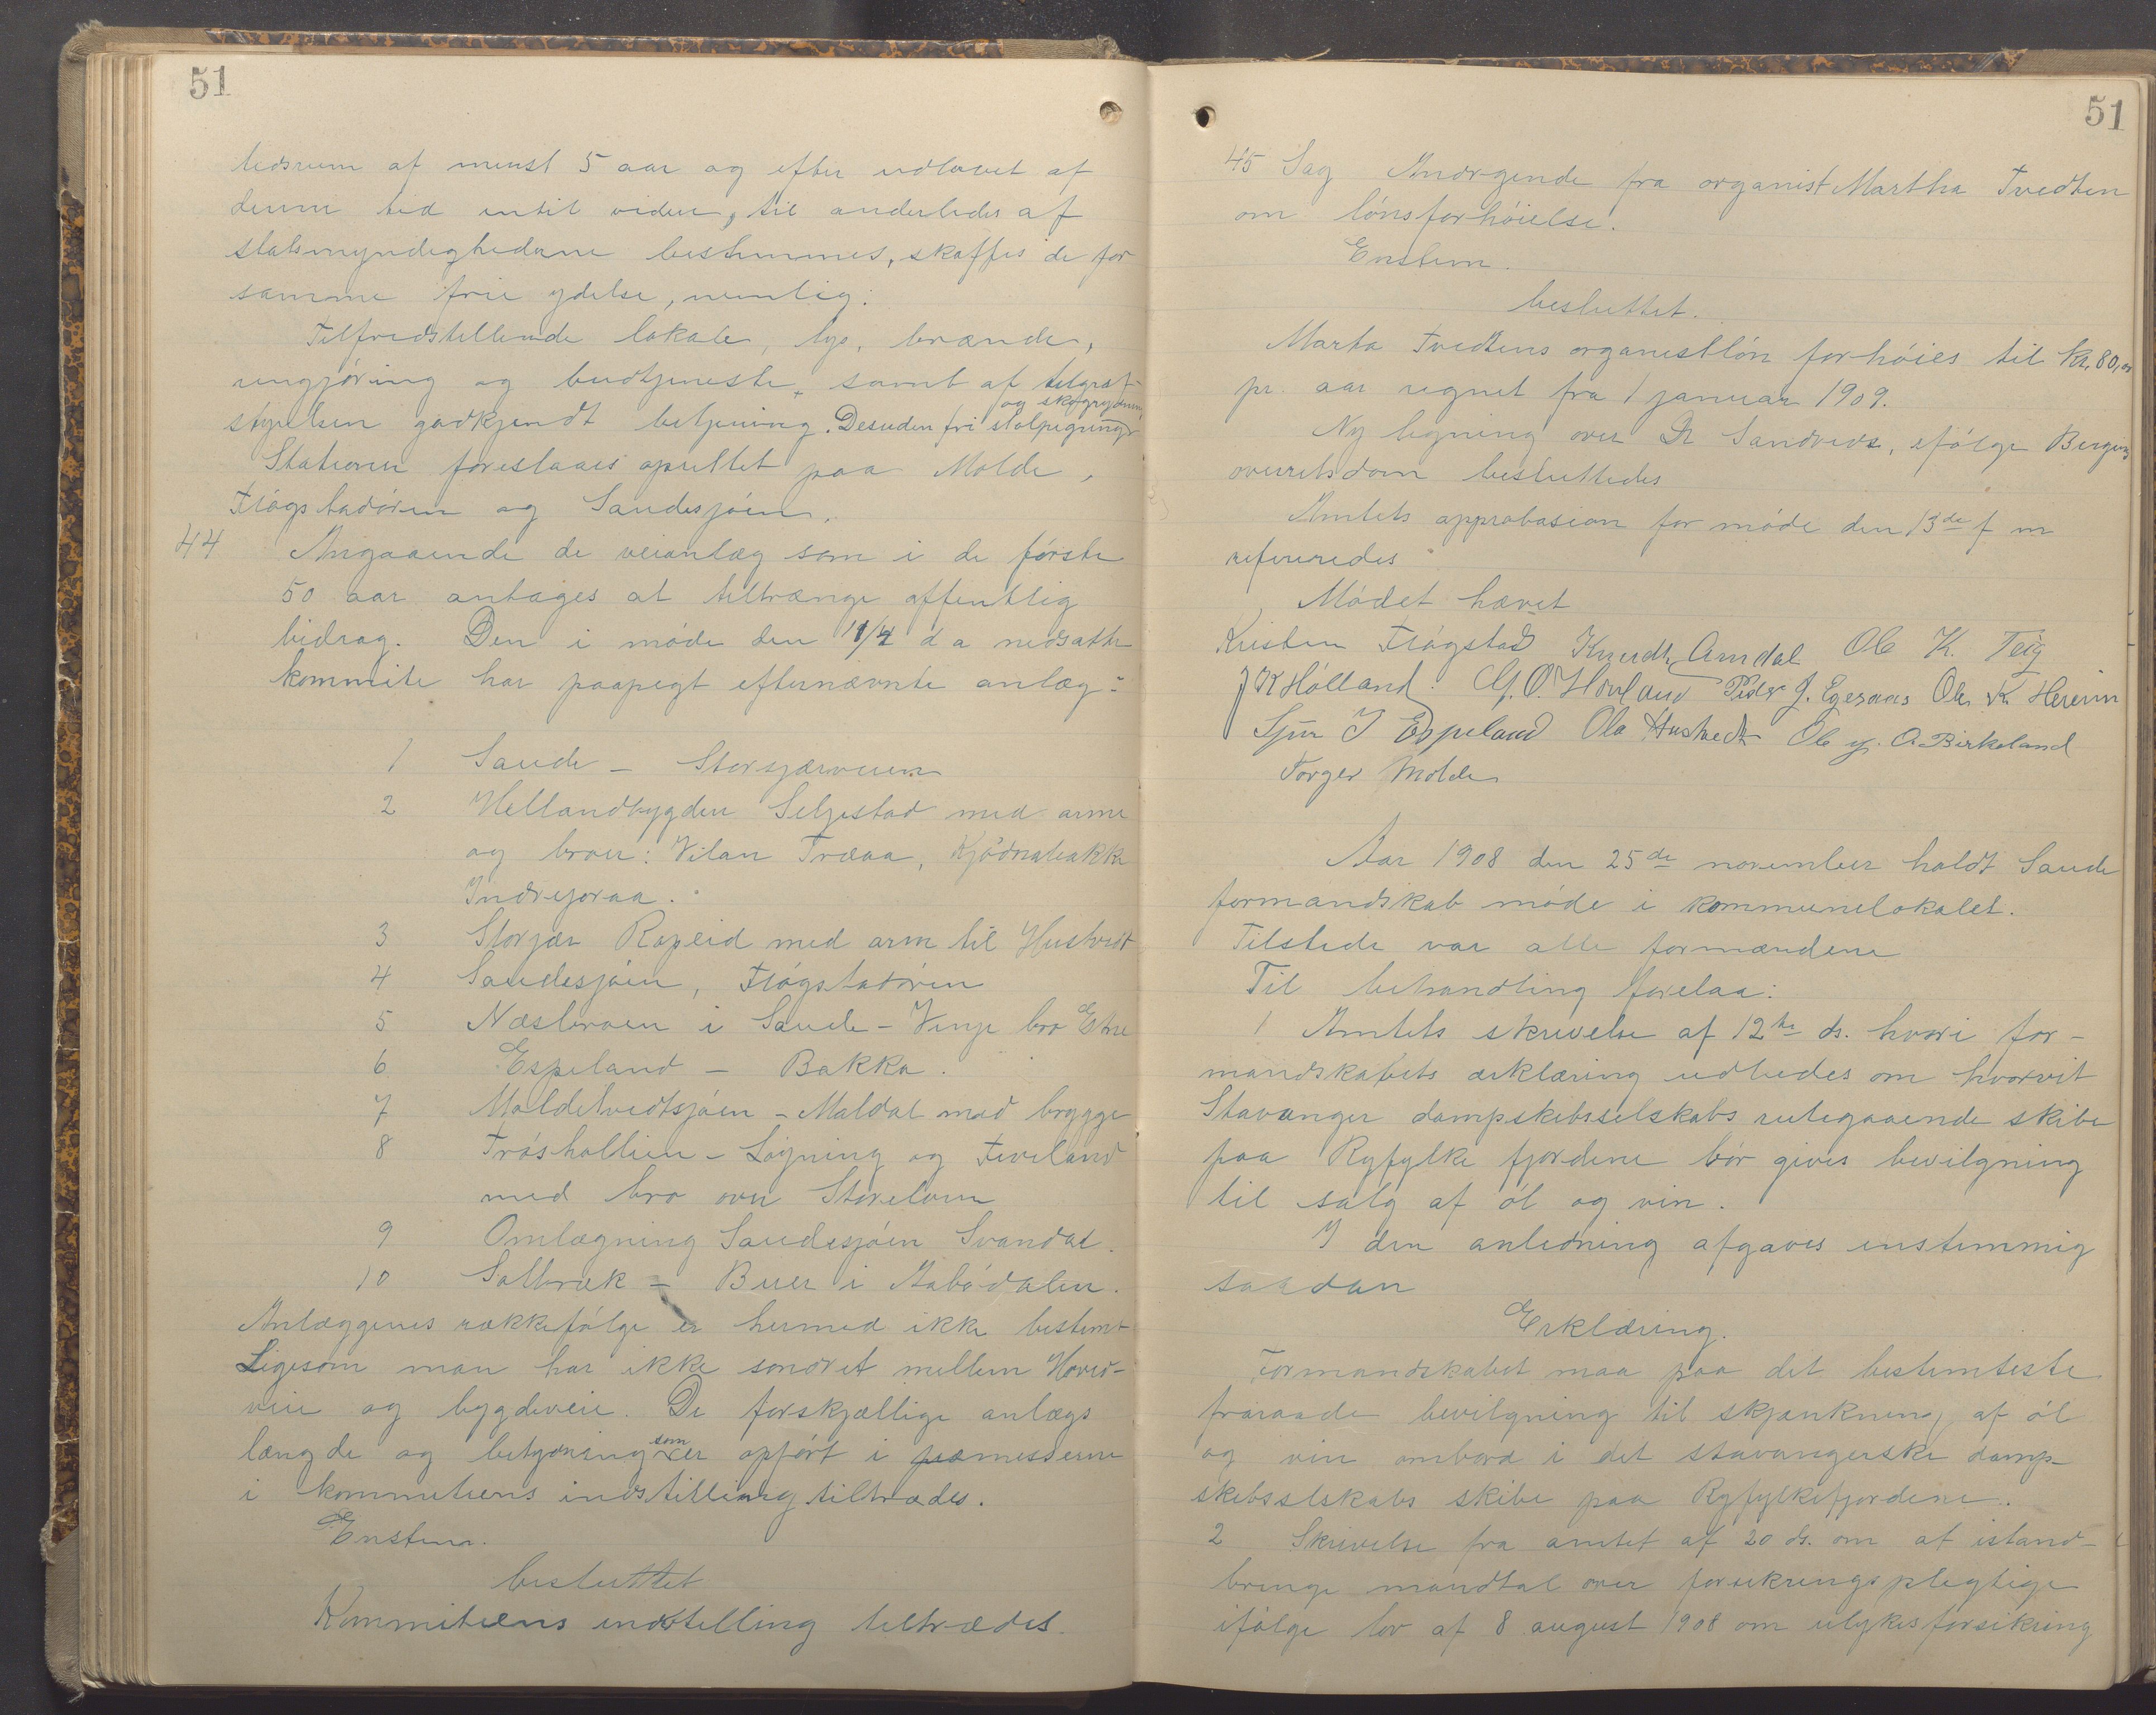 51
tidsrum af mindst 5 aar og efter udløbet af
denne tid indtil videre, til anderledes af
statsmyndighederne bestemmes, skaffes de for
samme frie ydelse, nemlig:
Tilfredstillende lokale, lys, brænde,
rengjøring og budtjeneste, samt af telegraf-
og skogrydning
styrelsen godkjendt betjening. Desuden fri stolpegrund
Stationer foreslaaes oprettet paa Molde,
Fløgstadøren og Saudesjøen.
44 Angaaende de veianlæg som i de første
50 aar antages at tiltrænge offentlig
bidrag. Den i møde den 11/4 d a nedsatte
kommite har paapegt efternævnte anlæg:
1 Saude - Storsjærveien
2 Hellandbygden Seljestad med arme
og broer: Vilan Træaa, Kjødnabakke
Indrejoraa.
3 Storjær Ropeid med arm til Hustvedt
4 Saudesjøen, Fløgstadøren
5 Næsbroen i Saude - Vinje bro Etne
6 Espeland - Bakka.
7 Maldetvedtsjøen - Maldal med brygge
8 Frøshollien - Løyning og Fiveland
med bro over Storelven
9 Omlægning Saudesjøen Svandal.
10 Solbræk - Buer i Aabødalen.
Anlæggenes rækkefølge er hermed ikke bestemt
Ligesom man har ikke sondret mellem Hoved-
veie og bygdeveie. De forskjællige anlægs
længde og betydning som er opført i præmisserne
i kommiteens indstilling tiltrædes.
Enstem.
besluttet
Kommiteens indstilling tiltrædes.
51
45 Sag Andrgende fra organist Martha Tvedten
om lønsforhøielse.
Enstem.
besluttet.
Marta Tvedtens organistløn forhøies til kr. 80,00
pr. aar regnet fra 1 januar 1909.
Ny ligning over Dr Sandvers, ifølge Bergens
overretsdom besluttedes
Amtets approbasion for møde den 13de f m
refereredes
Mødet hævet
Kristen Fløgstad Knudt Amdal Ole K. Teig
J K Hølland. G. O. Hovland Peder J. Egeraas Ole K Hereim
Sjur J Espeland Ola Hustvedt Ole G. O. Birkeland
Torger Molde
Aar 1908 den 25de november holdt Saude
formandskab møde i kommunelokalet.
Tilstede var alle formændene
Til behandling forelaa:
1 Amtets skrivelse af 12te ds. hvori for-
mandskabets erklæring udbedes om hvorvit
Stavanger dampskibsselskabs rutegaaende skibe
paa Ryfylke fjordene bør gives bevilgning
til salg af øl og vin.
I den anledning afgaves enstemmig
saadan
Erklæring.
Formandskabet maa paa det bestemteste
fraraade bevilgning til skjænkning af øl
og vin ombord i det stavangerske damp-
skibsselskabs skibe paa Ryfylkefjordene.
2 Skrivelse fra amtet af 20 ds. om at istand-
bringe mandtal over forsikringspligtige
ifølge lov af 8 august 1908 om ulykesforsikring